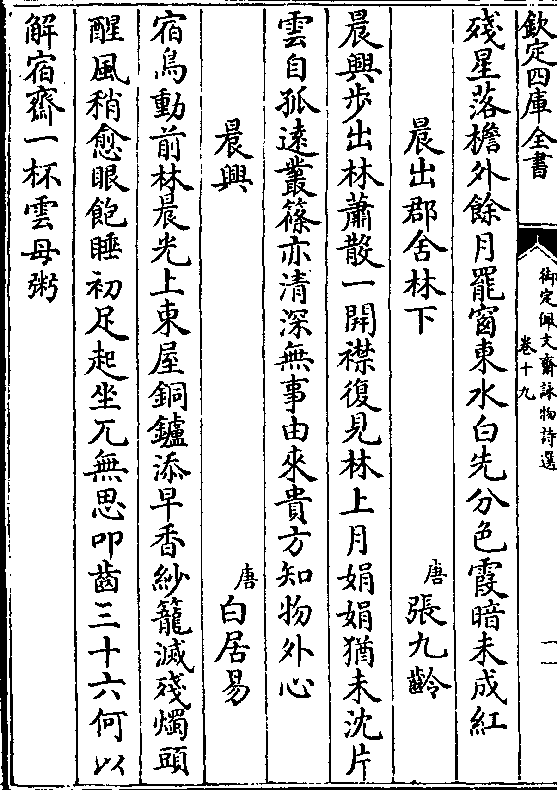 欽定四庫全書
御定佩文齋詠物詩選
卷十九
二
殘星落檐外餘月罷窗東水白先分色霞暗未成紅
晨出郡舍林下
唐
張九齡
晨興步出林蕭散一開襟復見林上月娟娟猶未沈片
雲自孤遠叢篠亦清深無事由來貴方知物外心
晨興
唐
白居易
宿鳥動前林晨光上東屋銅鑪添早香紗籠滅殘燭頭
醒風稍愈眼飽睡初足起坐兀無思叩齒三十六何以
解宿齋一杯雲母粥